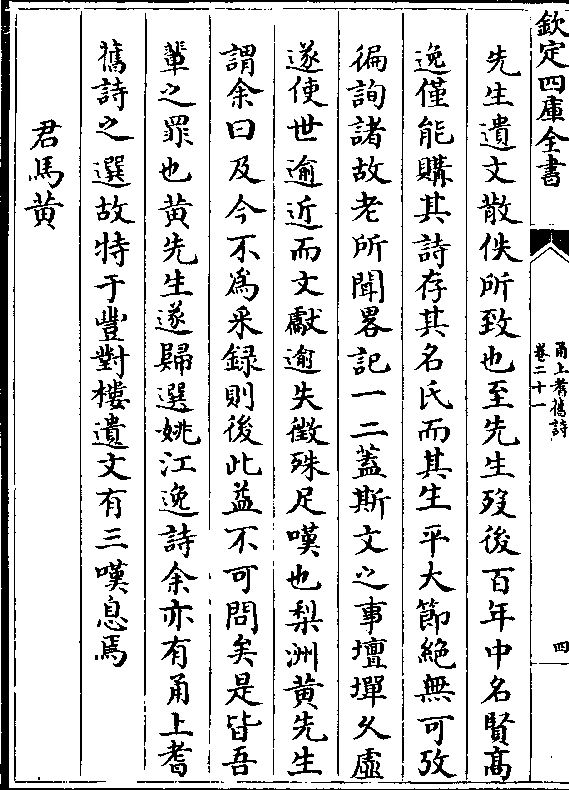 欽定四庫全書
甬上耆舊詩
卷二十一
四
先生遺文散佚所致也至先生歿後百年中名賢高
逸僅能購其詩存其名氏而其生平大節絶無可攷
徧詢諸故老所聞畧記一二蓋斯文之事壇墠久虛
遂使世逾近而文獻逾失徵殊足嘆也梨洲黄先生
謂余曰及今不為采録則後此益不可問矣是皆吾
輩之罪也黄先生遂歸選姚江逸詩余亦有甬上耆
舊詩之選故特于豐對樓遺文有三嘆息焉
君馬黄